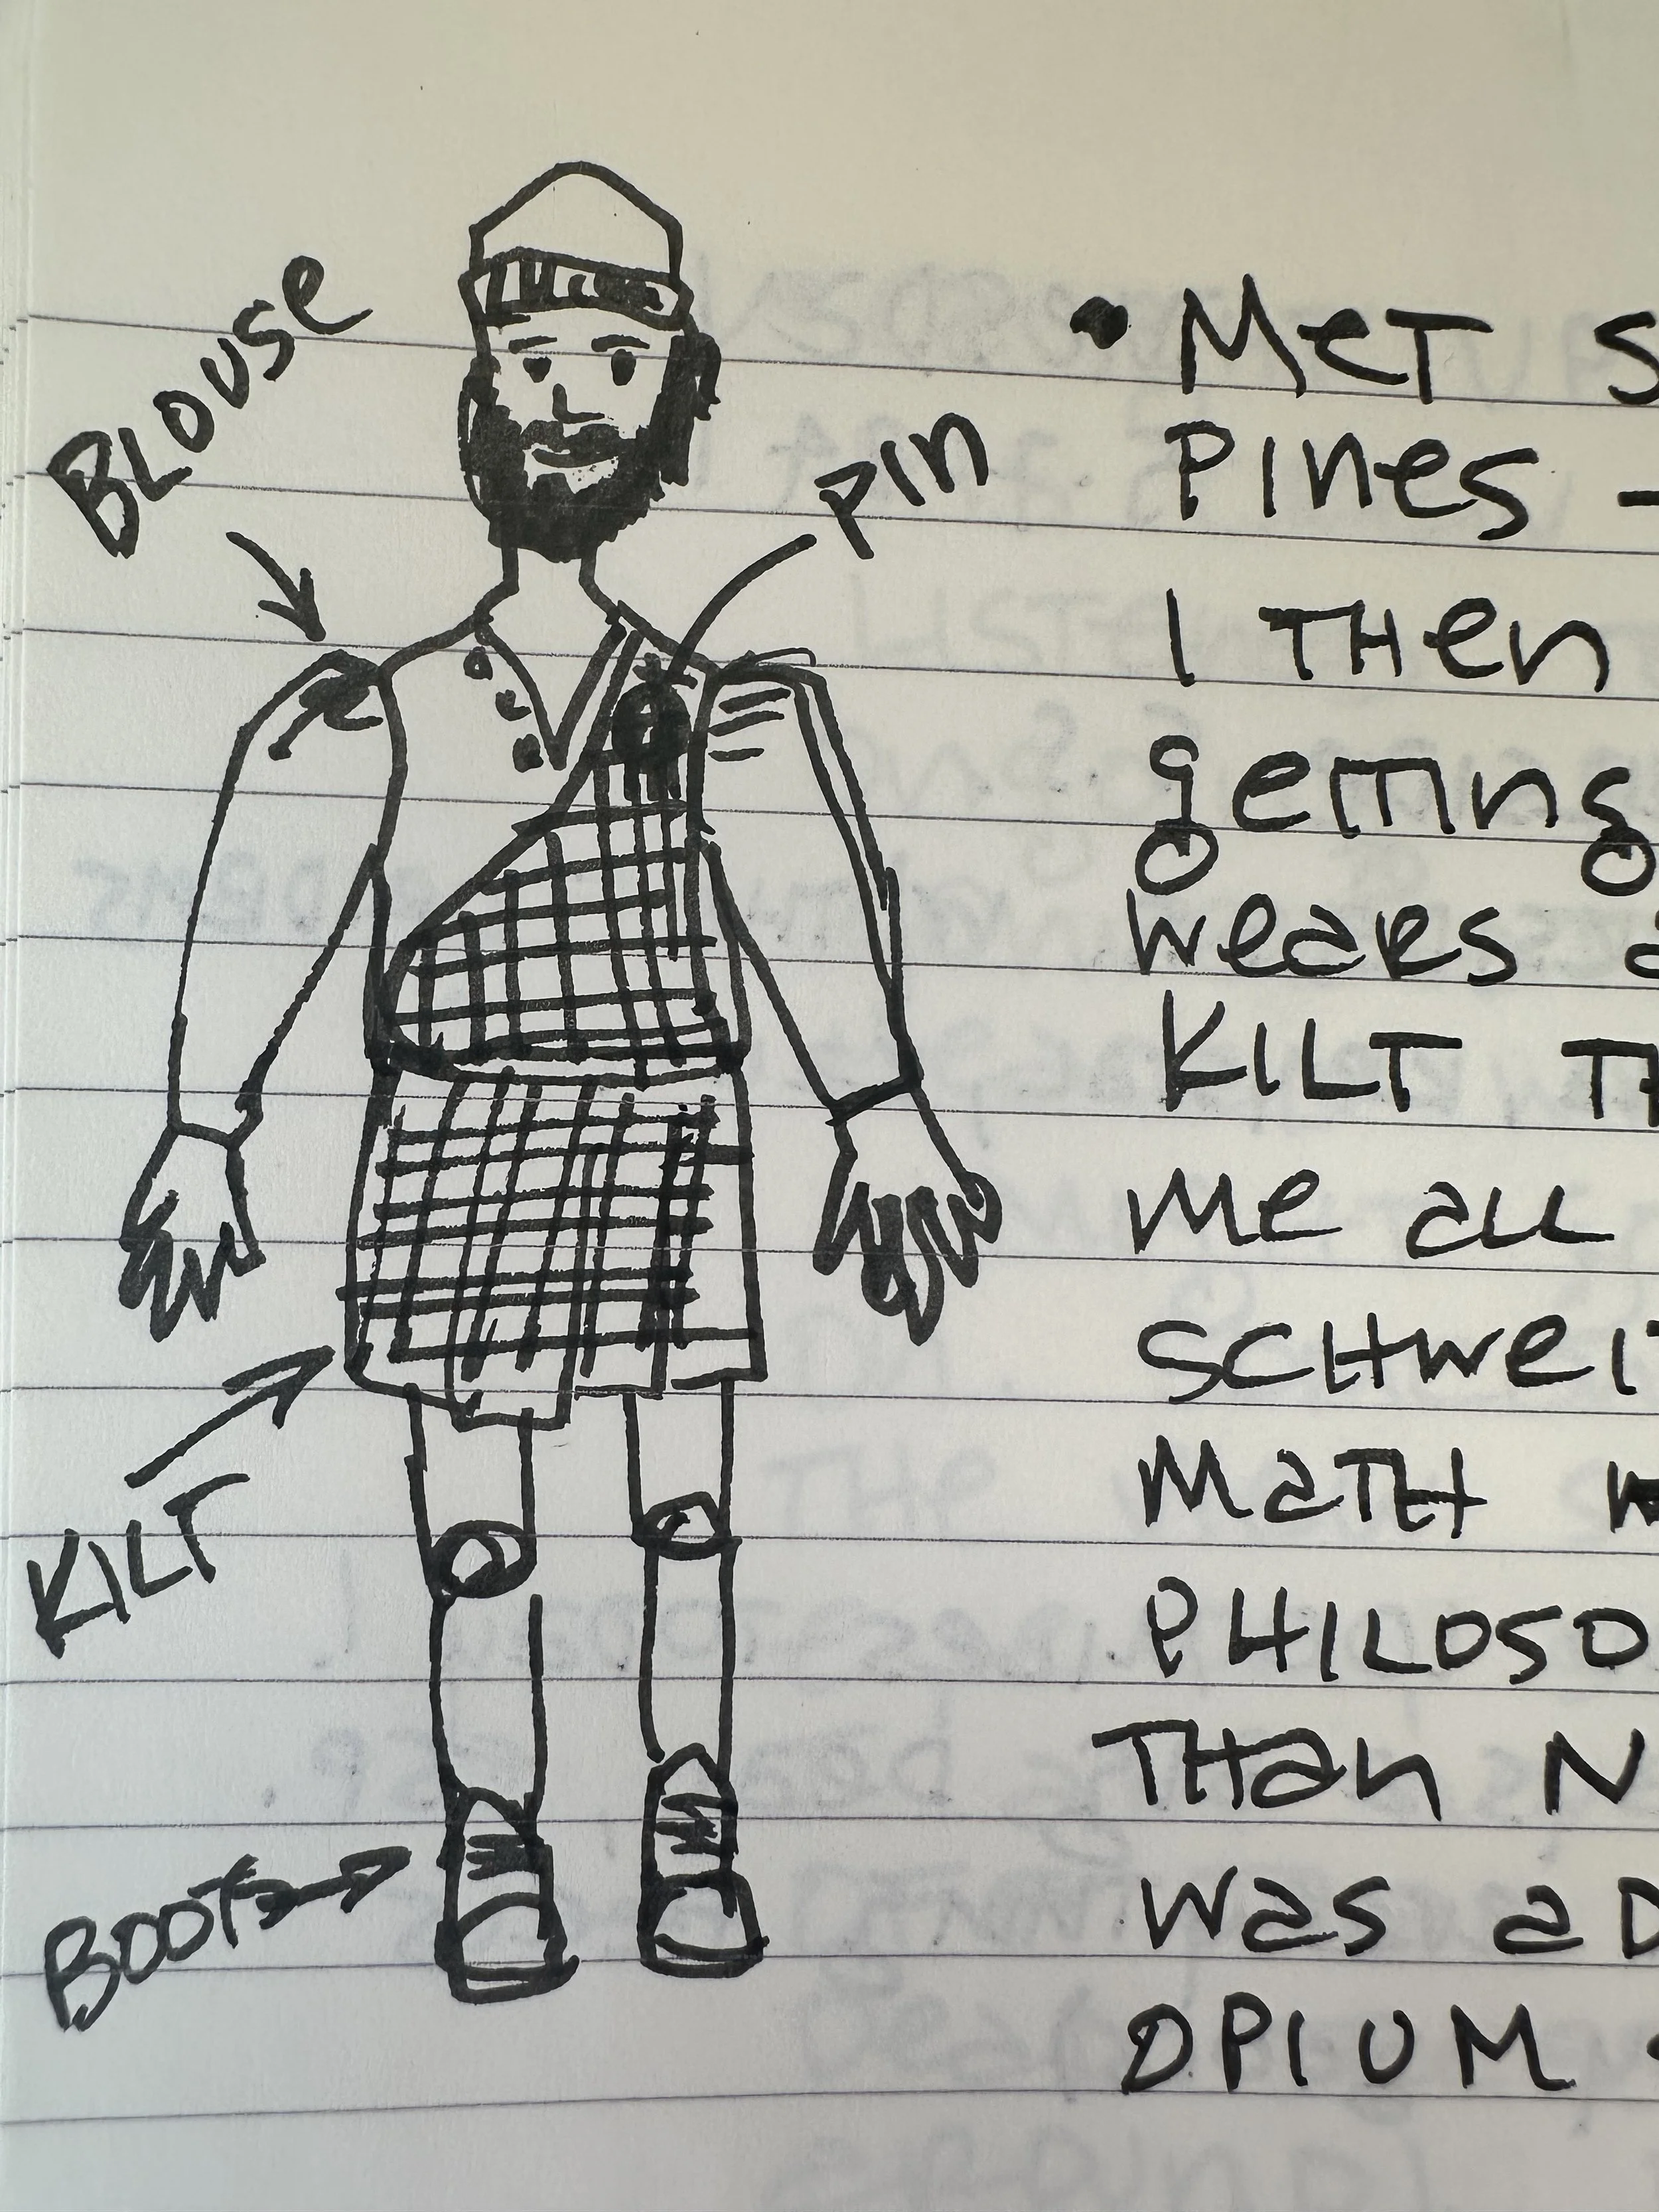 BLOUSE
PIN
KILT
BOOTS
• MET S
PINES -
I THEN
getting
wears a
KILT TH
me all
SCHWEI
MATH
PHILOSO
THAN N
was a D
OPIUM